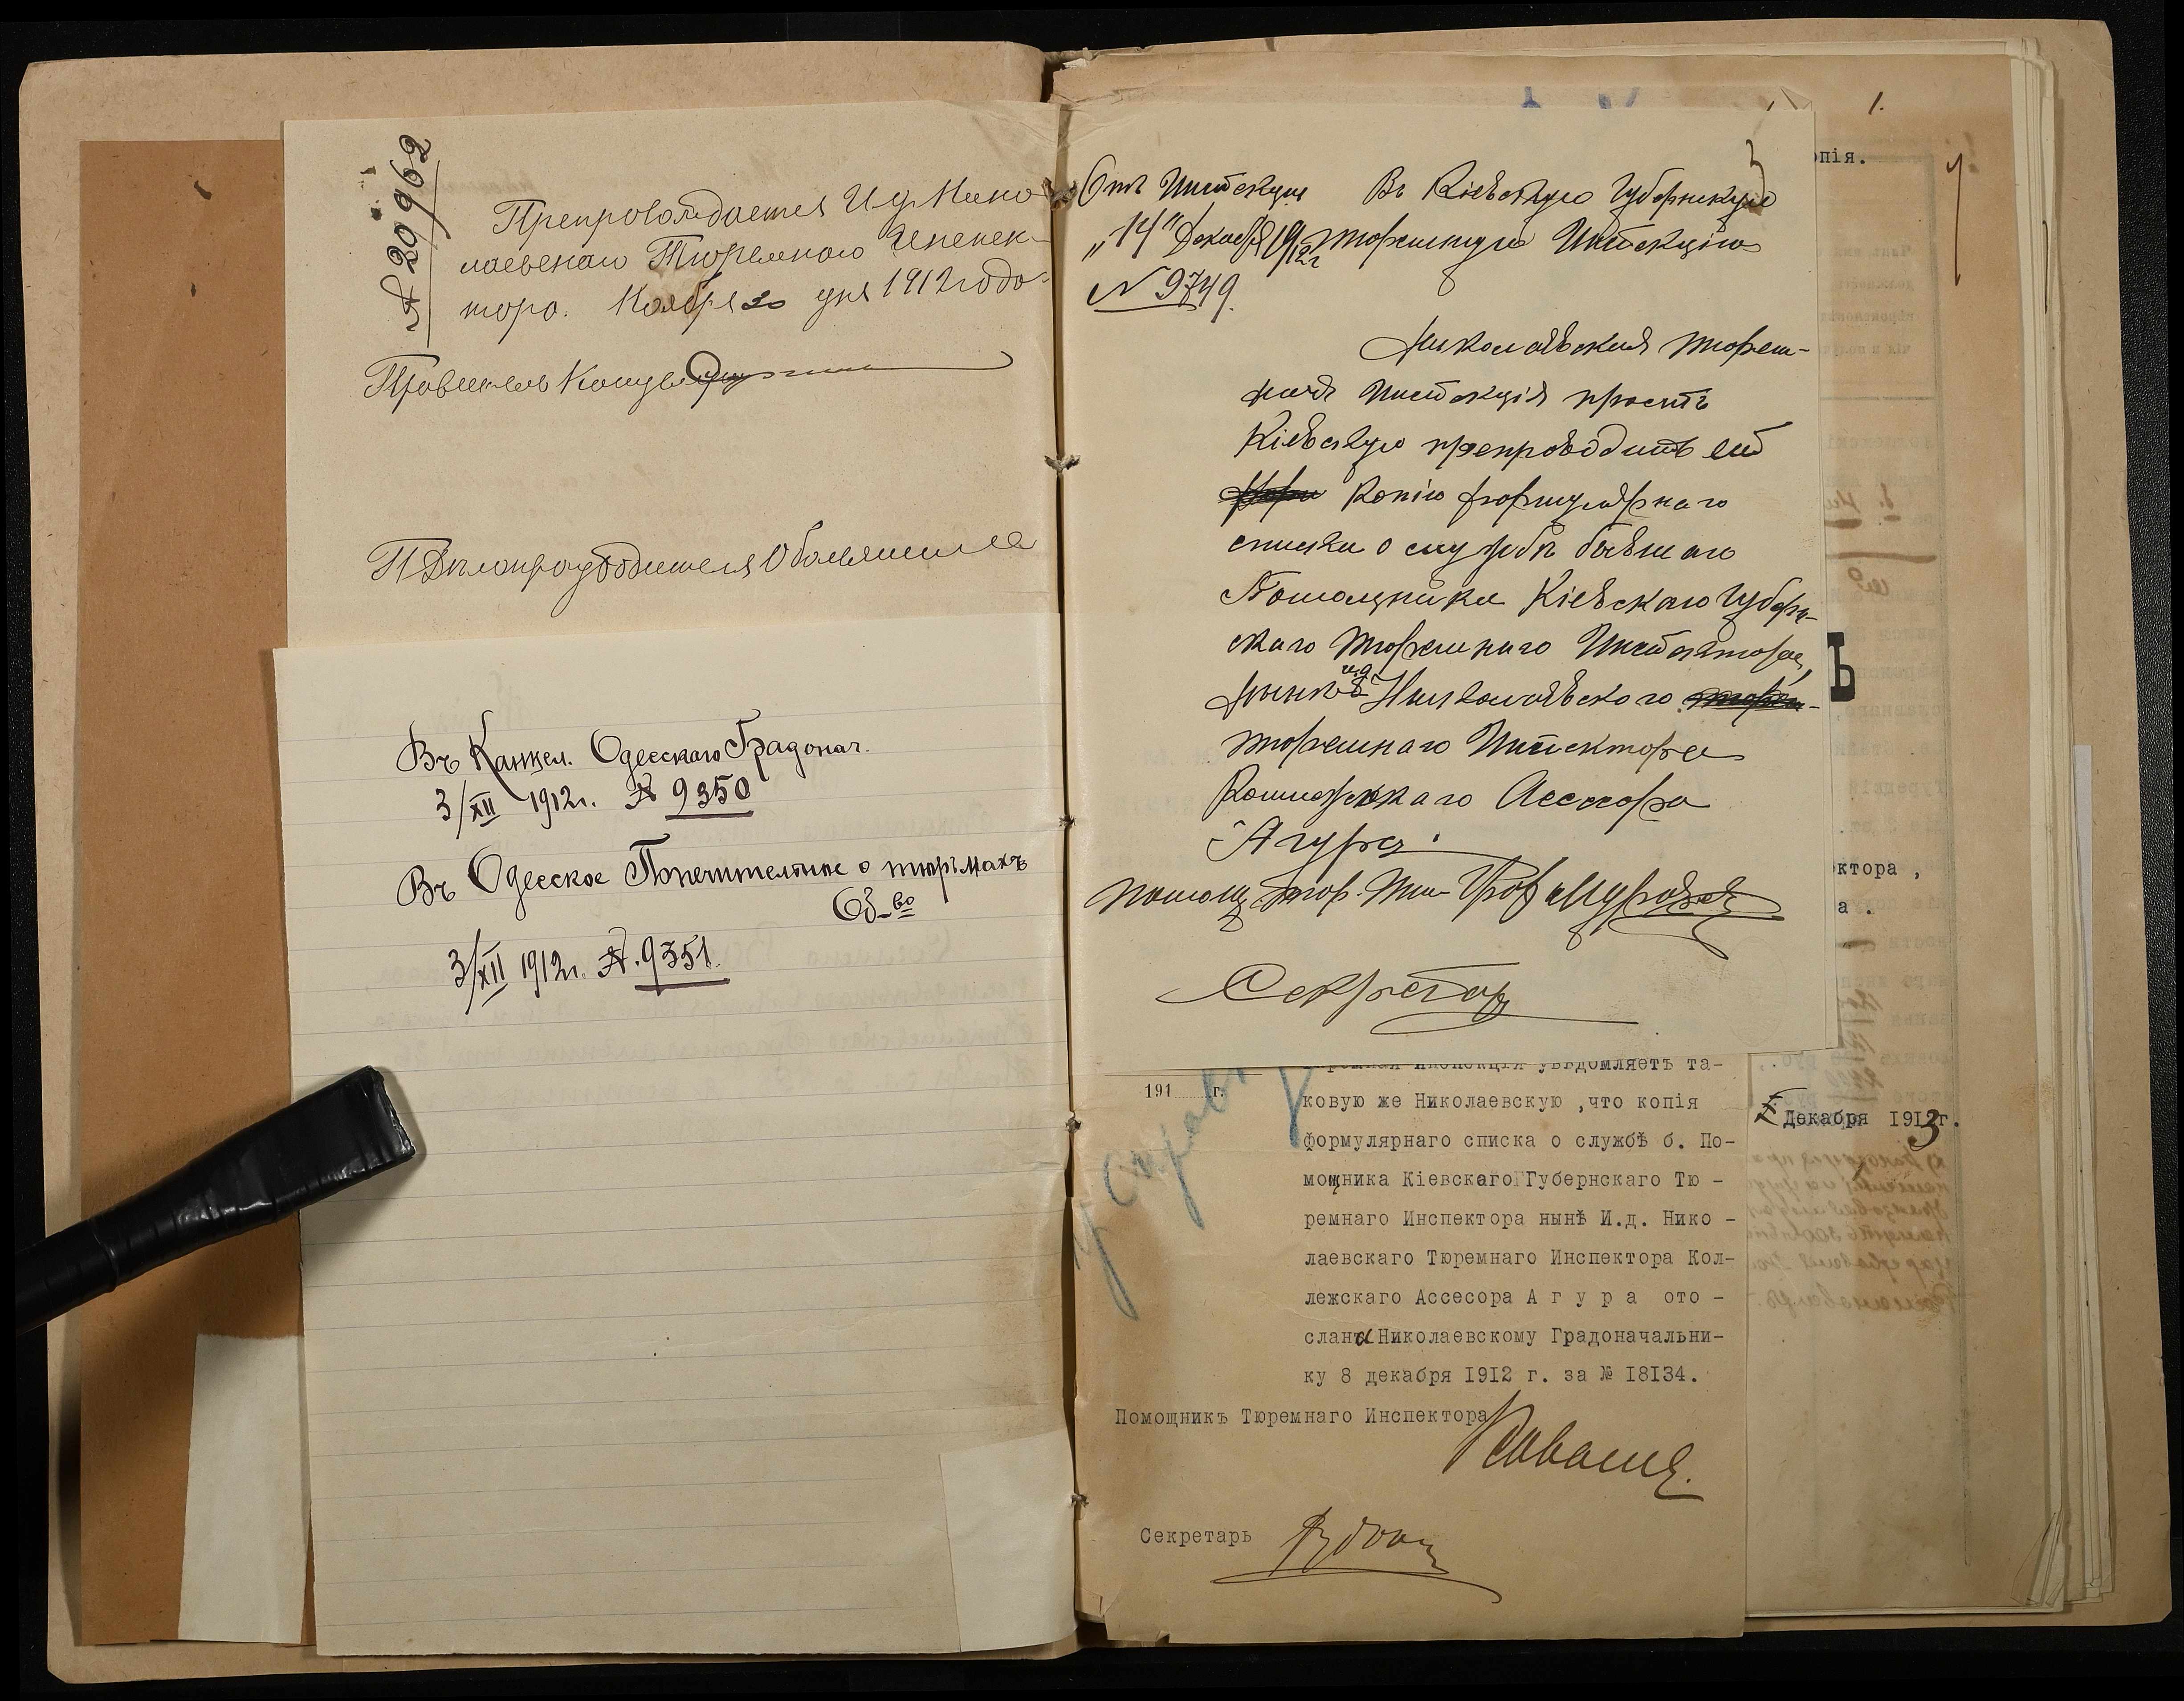 № 20962
Препровождается И.д. Нико
лаевскаго Тюремнаго Инспек-
тора. Ноября 30 дня 1912 года
Правитель Канцел
Въ Канцел. Одесскаго Градонач.
3/XII 1912 г. № 9350
Въ Одесское Попечительное о тюрьмахъ
Об-во
3/XII 1912 г. № 9351.
3
Отъ Инспекции
„14" Декабря 1912 г
№ 9749.
Въ Кіевскую Губернскую
тюремную Инспекцію
Николаевская тюрем-
ная Инспекція проситъ
Кіевскую препроводить ей
копію формулярнаго
списка о службѣ бывшаго
Помощника Кіевскаго Губерн-
скаго тюремнаго Инспектора,
нынѣ и.д. Николаевского
тюремнаго Инспектора
Коллежскаго Ассесора
Агура.
помощ. тюр. Ин
Секретарь
191 г.
ремная Инспекція увѣдомляетъ та-
ковую же Николаевскую ,что копія
формулярнаго списка о службѣ б. По-
мощника Кіевскаго Губернскаго Тю -
ремнаго Инспектора нынѣ И.д. Нико -
лаевскаго Тюремнаго Инспектора Кол-
лежскаго Ассесора А г у р а ото -
слана Николаевскому Градоначальни-
ку 8 декабря 1912 г. за № I8I34.
Помощникъ Тюремнаго Инспектора
Секретарь
1.
опія.
Ъ
ектора ,
а .
Декабря 1913г.